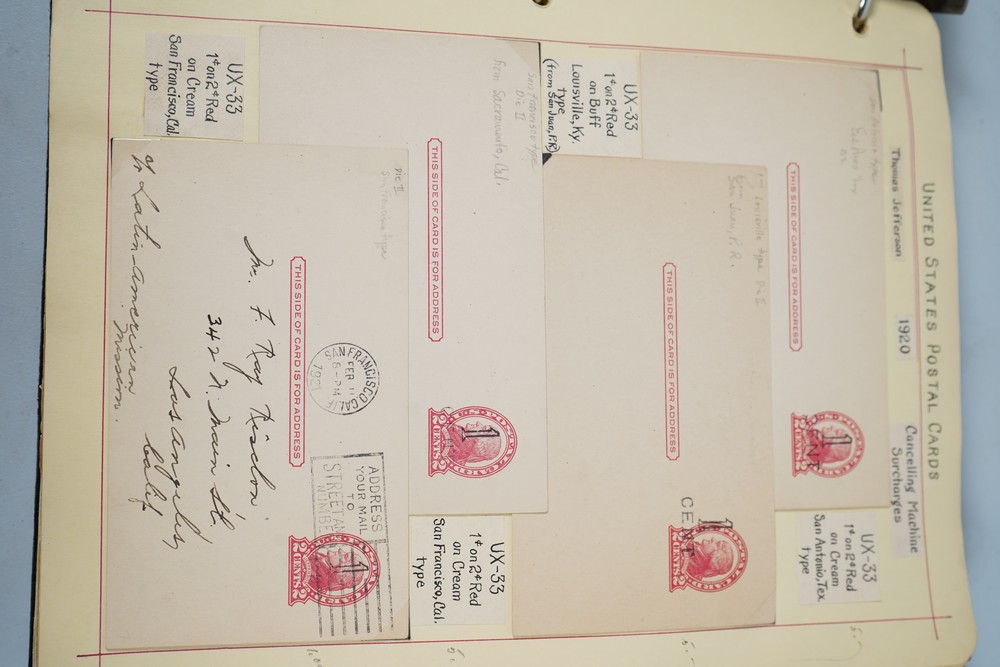 UNITED STATES POSTAL CARDS
Thomas Jefferson
1920
Cancelling Machine
Surcharges
THIS SIDE OF CARD IS FOR ADDRESS
1
CENT
2 CENTS 2
UX-33
1¢ on 2¢ Red
on Cream
San Antonio, Tex.
type
UX-33
1¢ on 2¢ Red
on Buff
Louisville, Ky.
type
(from San Juan, P.R.)
Louisville type Die I
from San Juan, P.R.
THIS SIDE OF CARD IS FOR ADDRESS
1
CENT
2 CENTS 2
San Francisco type
Die II
from Sacramento, Cal.
THIS SIDE OF CARD IS FOR ADDRESS
1
2 CENTS 2
UX-33
1¢ on 2¢ Red
on Cream
San Francisco, Cal.
type
UX-33
1¢ on 2¢ Red
on Cream
San Francisco, Cal.
type
Die II
San Francisco type
SAN FRANCISCO
CALIF
FEB 11
8-PM
1921
ADDRESS
YOUR MAIL
TO
STREET AND
NUMBER
THIS SIDE OF CARD IS FOR ADDRESS
1
2 CENTS 2
Mr. F. Ray Risdon
342 N. Main St.
Los Angeles,
Calif
% Latin-American
Mission.